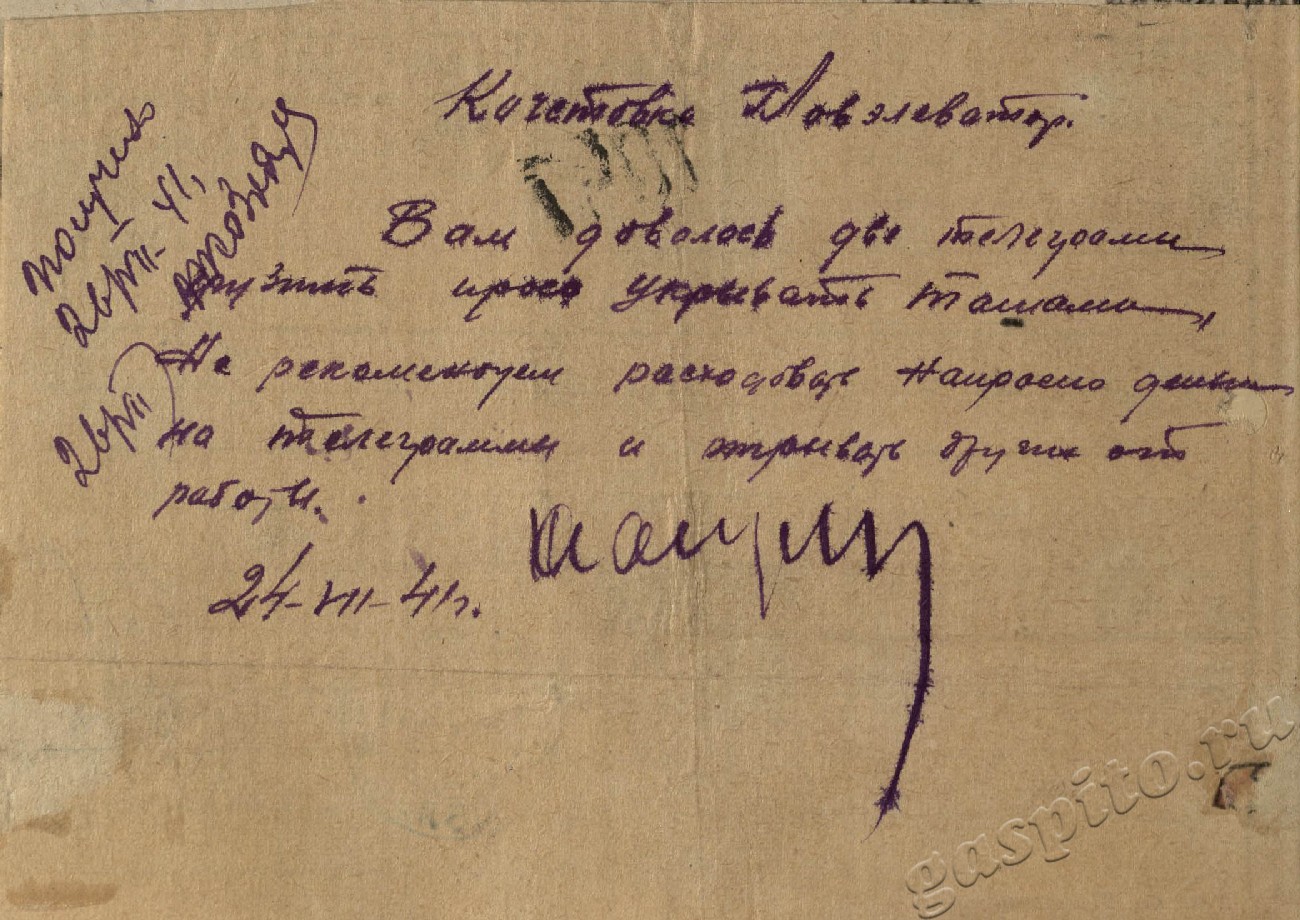 Кочетовка Совэлеватор.
Вам довалось две телеграмы
грузить просо укрывать
Не рекомендуем расходовать напрасно деньги
на телеграммы и отрывать других от
работы.
24-VII-41г.
получен
26/VII-41,
26/VII
gaspito.ru